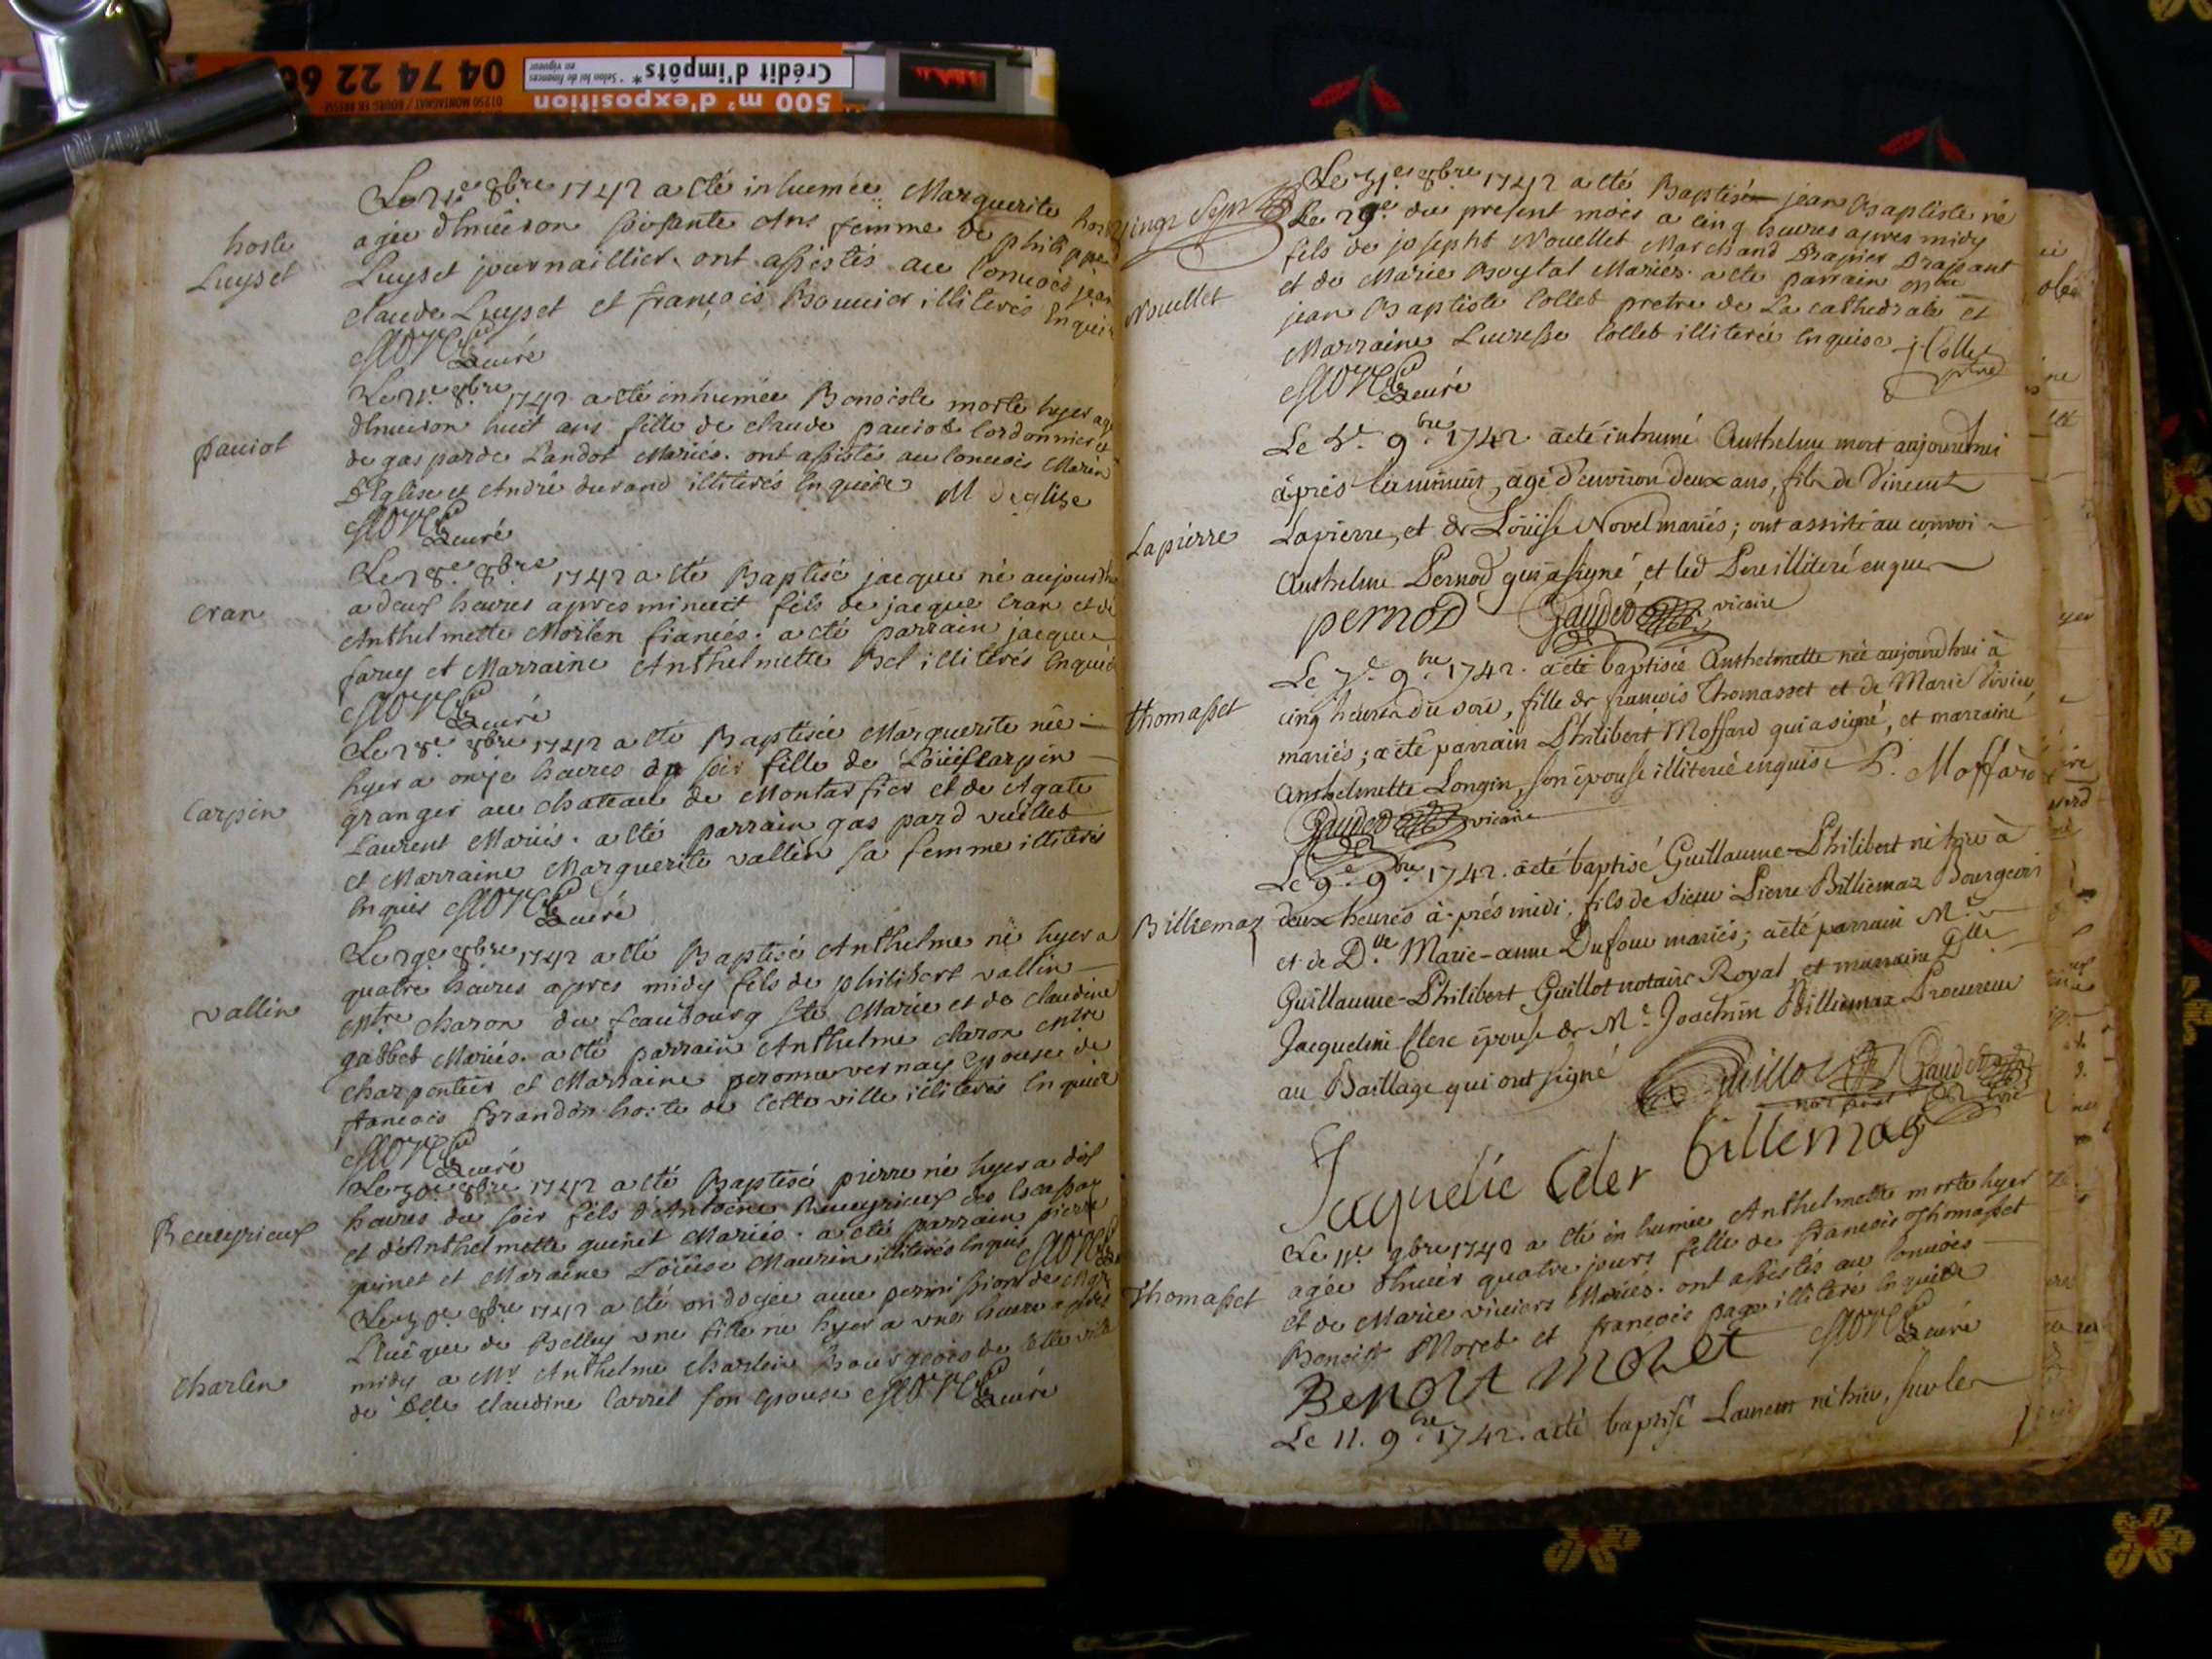 04 74 22 6
01250 MONTAGNAT / BOURG EN BRESSE
500 m² d'exposition
Crédit d'impôts*
* Selon loi de finances
en vigueur
hoste
Luyset
Le 8bre 1742 a eté inhumée Marguerite
agée d'huiron soisante Ans femme de philippe
Luyset journaillier. ont assistés au conuois jean
claude Luyset et françois Bouuier illiterés Enquis
curé
pauiot
Le 8bre 1742 a eté inhumée Benoiste morte hyer
d'huiron huit ans fille de claude pauiot Cordonnier et
de gasparde Landot Mariés. ont assistés au conuois Marin
D'Eglise et André durand illiterés Enquis M deglise
curé
cran
Le 28e 8bre 1742 a eté Baptisé jacque né aujourdhui
a deux heures apres minuit fils de jacque Cran et de
Anthelmette Morlen fiancés. a eté parrain jacque
farey et Marraine Anthelmette Bel illiterés Enquis
curé
Carpin
Le 28e 8bre 1742 a eté Baptisée Marguerite née
hyer a onze heures du soir fille de Louis Carpin
granger au chateau de Montarfier et de Agate
Laurent Mariés. a eté parrain gaspard vuillet
et Marraine Marguerite vallin sa femme illiterés
Enquis curé
vallin
Le 29e 8bre 1742 a eté Baptisé Anthelme né hyer a
quatre heures apres midy fils de philibert vallin
Mtre charon du feaubourg Ste Marie et de claudine
gabbet Mariés. a eté parrain Anthelme claron Mtre
charpentier et Marraine peronne vernay Epouse de
françois Brandon hoste de cette ville illiterés Enquis
curé
Reueyrieux
Le 30e 8bre 1742 a eté Baptisé pierre né hyer a dix
heures du soir fils d'Antoine Reueyrieux des
et d'Anthelmette guinet Mariés. a eté parrain pierre
guinet et Maraine Louise Maurin illiterés Enquis
charlin
Le 30e 8bre 1742 a eté ondoyée auec permission de Mgr
L'Euêque de Belley une fille née hyer a une heure apres
midy a Mr Anthelme charlin Bourgeois de cette ville
de Dlle claudine Carrel son Epouse curé
vingt sept
Nouellet
Le 31e 8bre 1742 a eté Baptisé jean Baptiste né
Le 29e du present mois a cinq heures apres midy
fils de josepht Nouellet Marchand Drapier Drapant
et de Marie Boytal Mariés. a eté parrain
jean Baptiste Collet pretre de La cathedrale et
Marraine Lucresse Collet illiterée Enquise j Collet
ptre
curé
Lapierre
Le 9bre 1742 a eté inhumé Anthelme mort aujourdhui
après la minuit, agé d'environ deux ans, fils de Vincent
Lapierre, et de Loüise Novel mariés; ont assisté au convoi
Anthelme Pernod qui a signé, et led Pere illiteré enquis
pernod Gaudet vicaire
thomasset
Le 7e 9bre 1742. a eté baptisée Anthelmette née aujourdhui à
cinq heures du soir, fille de françois Thomasset et de Marie
mariés; a eté parrain Philibert Moffard qui a signé, et marraine
Anthelmette Longin, son épouse illiterée enquise P. Moffard
Gaudet vicaire
Billiemaz
Le 9e 9bre 1742. a eté baptisé Guillaume-Philibert né hier à
deux heures après midi, fils de Sieur Pierre Billiemaz Bourgeois
et de Dlle Marie-anne Dufour mariés; a eté parrain Me
Guillaume-Philibert Guillot notaire Royal, et marraine Dlle
Jacqueline Clerc épouse de Me Joachim Billiemaz Procureur
au Baillage qui ont signé Guillot Gaudet
Jaquelie Cler billemaz
Thomasset
Le 11e 9bre 1742 a eté inhumée Anthelmette morte hyer
agée d'huir quatre jours fille de françois Thomasset
et de Marie viuiers Mariés. ont assistés au conuois
Benoist Moret et françois page illiteré Enquis
Benoit Moret curé
Le 11. 9bre 1742. a eté baptisé Laurent né hier, sur les